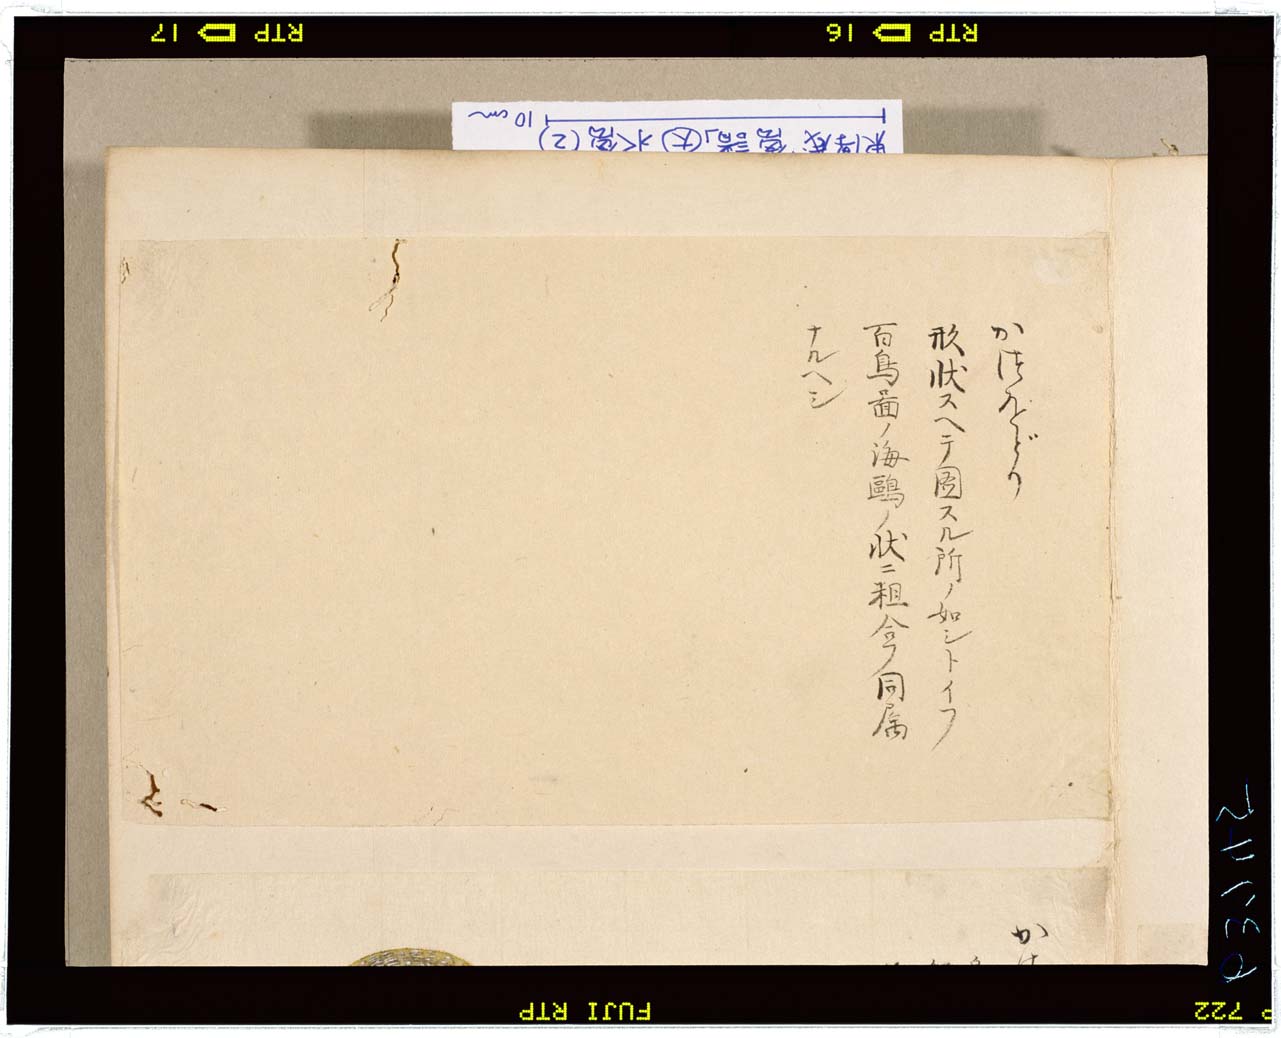 かはをどり
形状スヘテ圖スル所ノ如シトイフ
百鳥圖ノ海鷗ノ状ニ粗合フ同属
ナルヘシ
東博蔵 鳥譜(大)水禽(2)
10cm
RTP 16
RTP 17
FUJI RTP
P 722
か